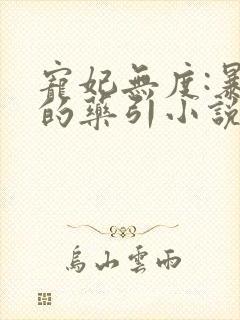 寵妃無度:暴
的藥引小說
烏山雲雨